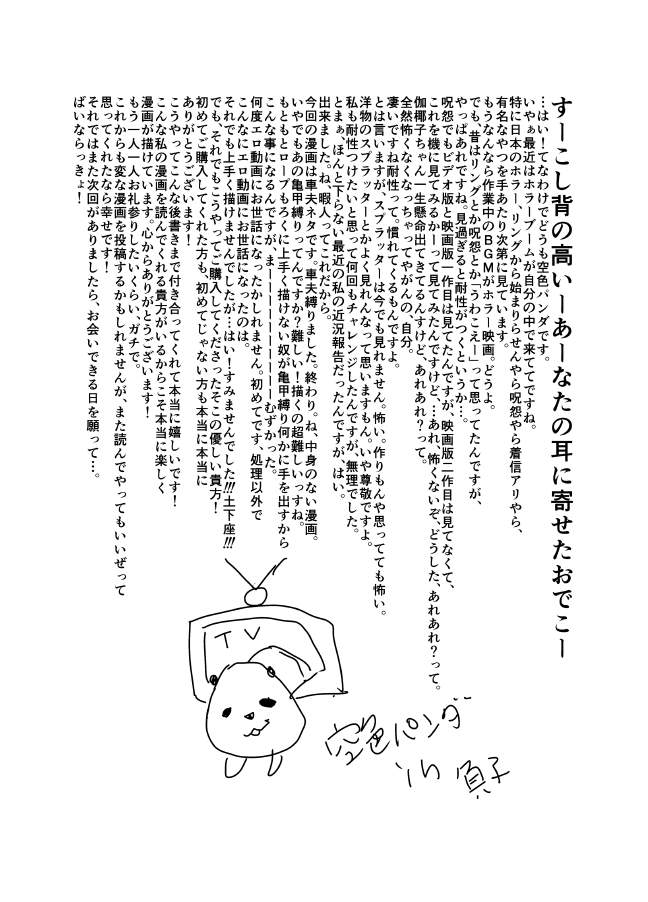 すーこし背の高いーあーなたの耳に寄せたおでこー
…はい！てなわけでどうも空色パンダです。
いやぁ最近はホラーブームが自分の中で来ててですね。
特に日本のホラー、リングから始まりらせんやら呪怨やら着信アリやら、
有名なやつを手あたり次第に見ています。
もうなんなら作業中のＢＧＭがホラー映画。どうよ。
でも、昔はリングとか呪怨とか「うわこえー」って思ってたんですが、
やっぱあれですね。見過ぎると耐性がつくというか…。
呪怨でもビデオ版と映画版一作目は見てたんですが、映画版二作目は見てなくて、
これを機に見てみるかーって見てみたんですけど…あれ、怖くないぞ、どうした、あれあれ？って。
伽椰子ちゃん一生懸命出てきてるんすけど、あれあれ？って。
全然怖くなくなっちゃってやがんの自分。
凄いですね耐性って。慣れてくるもんですよ。
とは言いますが、スプラッターは今でも見れません。怖い。作りもんや思ってても怖い。
洋物のスプラッターとかよく見れんなって思いますもん。いや尊敬ですよ。
私も耐性つけたいと思って何回もチャレンジしたんですが、無理でした。
とまぁ、ほんと下らない最近の私の近況報告だったんですが、はい。
出来ました。ね、暇人ってこれだから。
今回の漫画は車夫ネタです。車夫縛りました。終わり。ね、中身のない漫画。
いやでもあの亀甲縛りってんですか？難しい！描くの超難しいっすね。
もともとロープもろくに上手く描けない奴が亀甲縛り何かに手を出すから
こんな事になるんですが、まーーーーーーーーーむずかった。
何度エロ動画にお世話になったかしれません。初めてです、処理以外で
こんなにエロ動画にお世話になったのは。
それでも上手く描けませんでしたが…はい！すみませんでした!!!土下座!!!
でも、それでもこうやってご購入してくださったそこの優しい貴方！
初めてご購入してくれた方も、初めてじゃない方も本当に本当に
ありがとうございます！
こうやってこんな後書きまで付き合ってくれて本当に嬉しいです！
こんな私の漫画を読んでくれる貴方がいるからこそ本当に楽しく
漫画が描けています。心からありがとうございます！
もう一人一人お礼参りしたいくらい、ガチで。
これからも変な漫画を投稿するかもしれませんが、また読んでやってもいいぜって
思ってくれたなら幸せです！
それではまた次回がありましたら、お会いできる日を願って…。
ばいならっきょ！
TV
空色パンダ
in 貞子